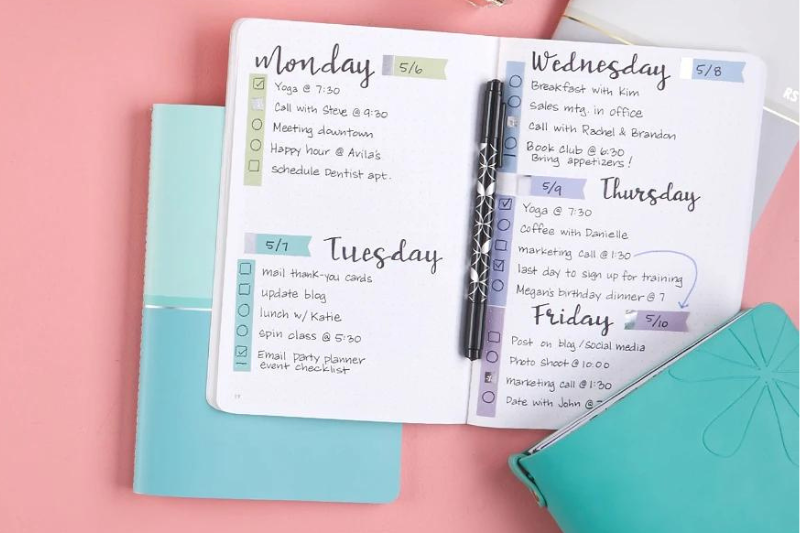 Monday 5/6
Yoga @ 7:30
Call with Steve @ 9:30
Meeting downtown
Happy hour @ Avila's
schedule Dentist apt.
5/7 Tuesday
mail thank-you cards
update blog
lunch w/ Katie
spin class @ 5:30
Email party planner
event checklist
Wednesday 5/8
Breakfast with Kim
Sales mtg. in office
Call with Rachel & Brandon
Book Club @ 6:30
Bring appetizers!
5/9 Thursday
Yoga @ 7:30
Coffee with Danielle
marketing call @ 1:30
last day to sign up for training
Megan's birthday dinner @ 7
Friday 5/10
Post on blog/social media
Photo shoot @ 10:00
marketing call @ 1:30
Date with John @
RS